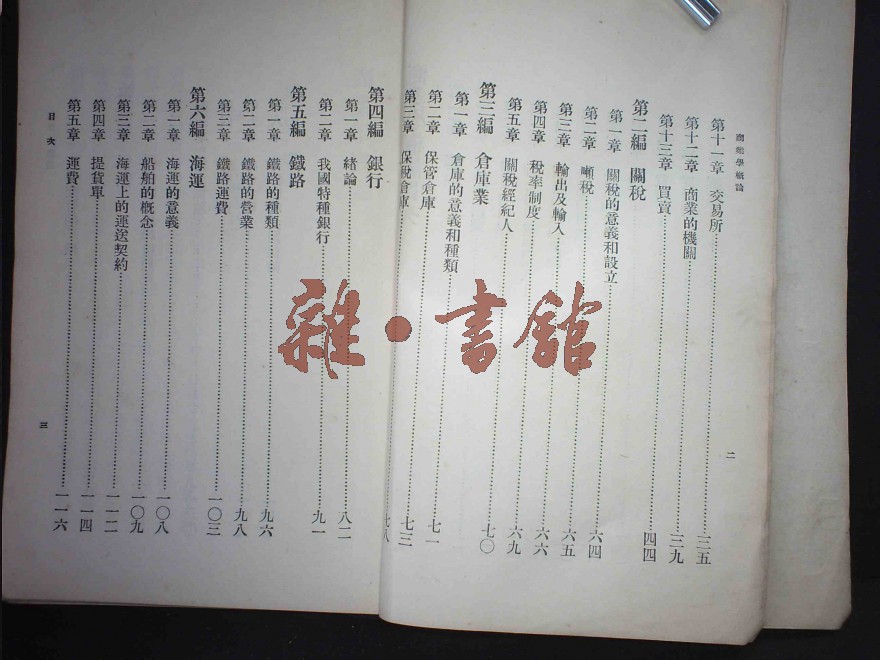 商業學概論
二
第十一章 交易所……三五
第十二章 商業的機關……三九
第十三章 買賣……四四
第二編 關稅
第一章 關稅的意義和設立……六四
第二章 噸稅……六五
第三章 輸出及輸入……六六
第四章 稅率制度……六九
第五章 關稅經紀人……七〇
第三編 倉庫業
第一章 倉庫的意義和種類……七一
第二章 保管倉庫……七三
第三章 保稅倉庫……七八
第四編 銀行
第一章 緒論……八二
第二章 我國特種銀行……九一
第五編 鐵路
第一章 鐵路的種類……九六
第二章 鐵路的營業……九八
第三章 鐵路運費……一〇三
第六編 海運
第一章 海運的意義……一〇八
第二章 船舶的概念……一〇九
第三章 海運上的運送契約……一一二
第四章 提貨單……一一四
第五章 運費……一一六
目次
三
雜·書館